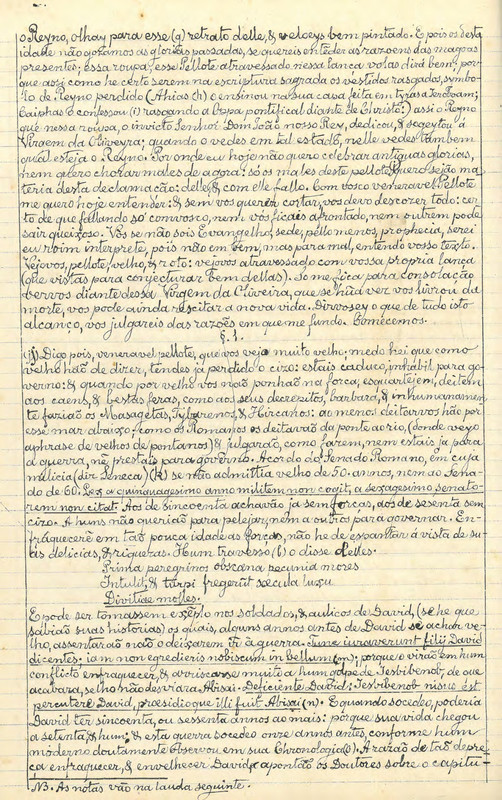 o Reyno, olhay para esse (g) retrato delle, & veloeys bem pintado. E pois os desta
idade não gozamos as glorias passadas, se quereis enteder as razoens das magoas
presentes; essa roupa, esse Pellote atravessado nessa lança volas dirá bem; por
que assi como he certo serem na escriptura sagrada os vestidos rasgados, symbo-
lo de Reyno perdido (Ahias (h) o ensinou na sua capa feita em tyras a Jeroboam;
Caiphas o confessou (i) rasgando a Oopa pontifical diante de Christo:) assi o Reyno
que nessa roupa, o invicto Senhor Dom João nosso Rey, dedicou, & sogeytou á
Virgem da Oliveyra; quando o vedes em tal estado, nelle vedes tambem
qual esteja o Reyno. Por onde eu hoje não quero celebrar antiguas glorias,
nem quero chorar males de agora: só os males deste pellote quero sejão ma-
teria desta declamacão: delle, & com elle fallo. Com vosco veneravel Pellote
me quero hoje entender: & sem vos querer cortar, vos devo descozer todo: cer-
to de que fallando só comvosco, nem vos ficais afrontado, nem outrem pode
sair queixoso. Vos se não sois Evangelho, sede, pello menos, prophecia, serei
eu roim interprete, pois não em bem, mas para mal, entendo vosso texto.
Vejovos, pellote, velho, & roto: vejovos atravessado com vossa propria lança
(que vistas para conjecturar bem dellas). So me fica para consolação
vervos diante dessa Virgem da Oliveira, que se hũa vez vos livrou da
morte, vos pode ainda resucitar a nova vida. Dirvosey o que de tudo isto
alcanço, vos julgareis das razões em que me fundo. Comecemos.
§. 1.
(j) Digo pois, veneravel pellote, que vos vejo muito velho; medo hei que como
velho hão de dizer, tendes já perdido o ciro: estais caduco, inhabil para go-
verno: & quando por velho vos não ponhão na forca, esquartejem, deitem
aos caens, & bestas feras, como aos seus decrepitos, barbara, & inhumanamen-
te fazião os Masagetas, Tybarenos, & Hircanos: ao menos deitarvos hão por
esse mar abaixo (como os Romanos os deitavão da ponte ao rio, (donde veyo
a phrase de velhos de pontanos) & julgarão, como fazem, nem estais ja para
a guerra, nẽ prestais para governo. Acordo do Senado Romano, em cuja
milicia (diz Seneca) (k) se não admittia velho de 50. annos, nem ao Sena-
do de 60. Lex a quinquagesimo anno militem non cogit, a sexagesimo senato-
rem non citat. Aos de sincoenta achavão ja sem forças, aos de sesenta sem
ciro. A huns não querião para pelejar, nem a outros para governar. En-
fraquecerẽ em tão pouca idade as forças, não he de espantar á vista de su-
as delicias, & riquezas. Hum travesso (l) o disse delles.
Prima peregrinos obscæna pecunia mores
Intulit, & turpi fregerũt sæcula luxu
Divitiæ molles.
E pode ser tomassem exẽplo nos soldados, & aulicos de David, (se he que
sabião suas historias) os quais, alguns annos antes de David se achar ve-
lho, assentarão não o deixarem ir à guerra. Tunc iuraverunt filij David
dicentes: iam non egredieris nobiscum in bellum (m); porque o virão em hum
conflicto enfraquecer, & arriscarse muito a hum golpe de Jesbibenob, de que
acabara, se lho não desviara Abisai. Deficiente David; Jesbibenob nisus est
percutere David, præsidioque illi fuit Abisai (n). E quando socedeo, poderia
David ter sincoenta, ou sessenta annos ao mais: porque sua vida chegou
a setenta, & hum; & esta guerra socedeo onze annos antes, conforme hum
moderno doutamente observou em sua Chronologia (o). A razão de tão depre-
ça enfraquecer, & envelhecer David, apontão os Doutores sobre o capitu-
NB. As notas vão na lauda seguinte.